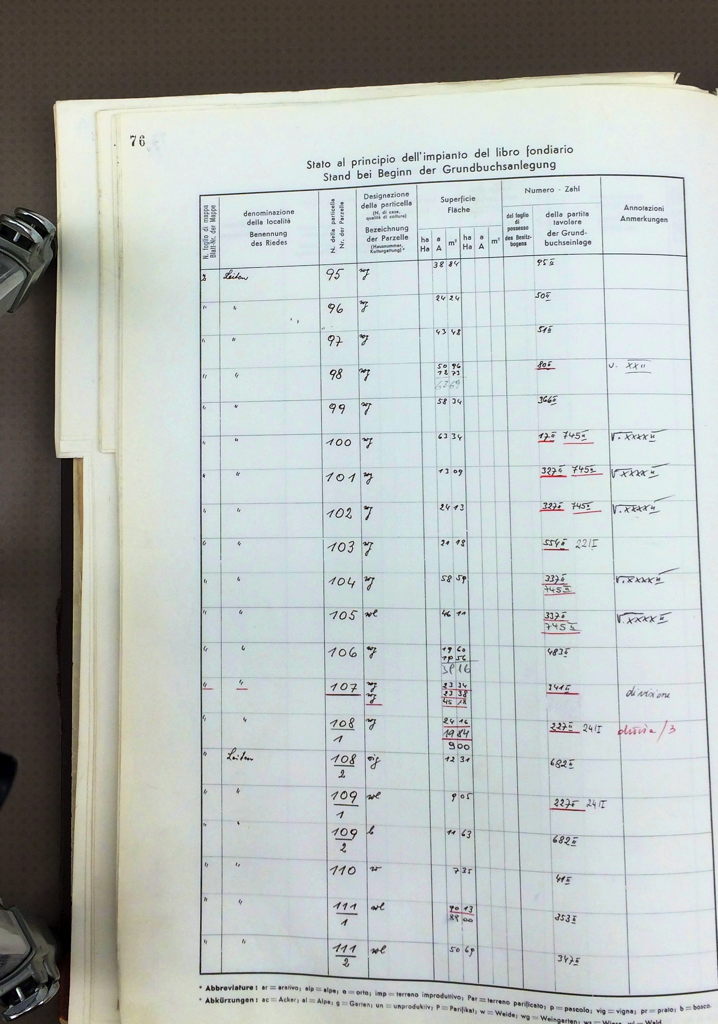 76
Stato al principio dell'impianto del libro fondiario
Stand bei Beginn der Grundbuchsanlegung
N. foglio di mappa
Blatt-Nr. der Mappe
denominazione
della località
Benennung
des Riedes
N. della particella
Nr. der Parzelle
Designazione
della particella
(N. di casa,
qualità di coltura)
Bezeichnung
der Parzelle
(Hausnummer,
Kulturgattung)*
Superficie
Fläche
ha a m² ha a m²
Ha A Ha A
Numero - Zahl
del foglio
di possesso
des Besitz-
bogens
della partita
tavolare
der Grund-
buchseinlage
Annotazioni
Anmerkungen
2 Leiten 95 38 84 95 II
" " 96 24 24 50 II
" 97 43 48 51 II
" " 98 50 96 80 II v. XX II
12 73
63 69
" " 99 58 34 366 II
" " 100 63 34 17 II 745 II v. XXXX II
" " 101 13 09 327 II 745 II v. XXXX II
" " 102 24 13 327 II 745 II v. XXXX II
" " 103 21 18 554 II 22/I
" " 104 58 59 337 II v. XXXX II
745 II
" " 105 46 11 337 II v. XXXX II
745 II
" " 106 19 60 483 II
19 56
39 16
" " 107 23 34 341 II divisione
23 38
" " 108 24 16 227 II 24/I
1 19 84
9 00
" Leiten 108 12 31 682 II
2
" " 109 9 05 227 II 24/I
1
" " 109 b 11 63 682 II
2
" " 110 w 7 35 41 II
" " 111 90 13 353 II
1 89 00
" " 111 50 69 347 II
2
* Abbreviature: ar = arativo, alp = alpe, o = orto, imp = terreno improduttivo, Par = terreno parificato, p = pascolo, vig = vigna, pr = prato, b = bosco.
* Abkürzungen: ac = Acker, al = Alpe, g = Garten, un = unproduktiv, P = Parifikat, w = Weide, wg = Weingarten,